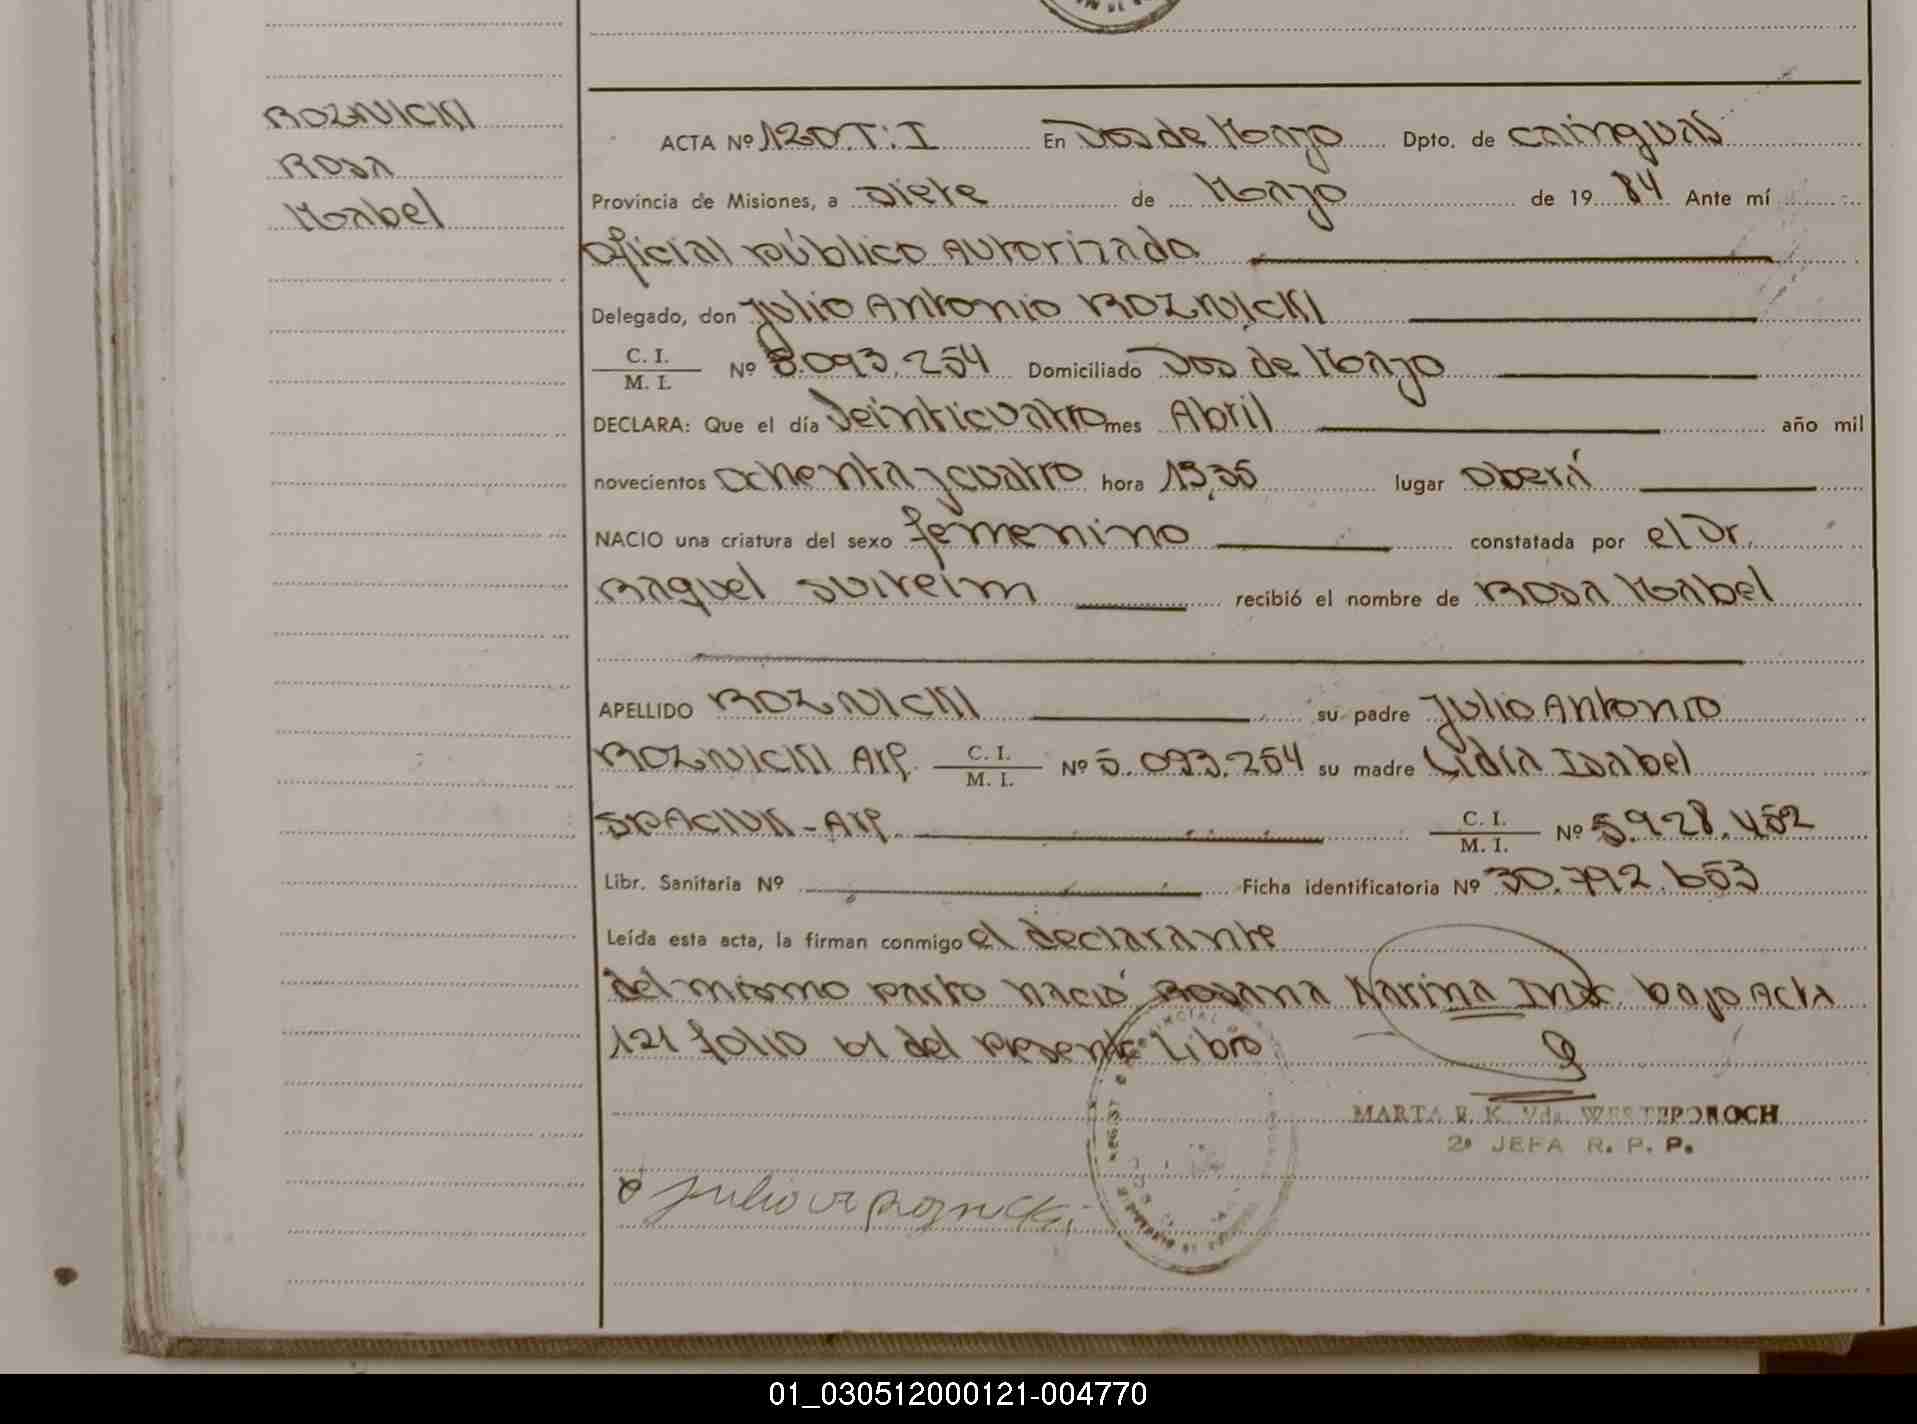 ROZNICKI
Rosa
Mabel
ACTA Nº 120.T:I En Dos de Mayo Dpto. de Cainguas
Provincia de Misiones, a siete de Mayo de 19 84 Ante mí
Oficial público Autorizado
Delegado, don Julio Antonio ROZNICKI
C. I.
M. I. Nº 5.093.254 Domiciliado Dos de Mayo
DECLARA: Que el día Veinticuatro mes Abril año mil
novecientos ochenta y cuatro hora 15,35 lugar Oberá
NACIO una criatura del sexo femenino constatada por el Dr.
Raquel recibió el nombre de Rosa Mabel
APELLIDO ROZNICKI su padre Julio Antonio
ROZNICKI Arg. C. I.
M. I. Nº 5.093.254 su madre Lidia Isabel
SPACIUK - Arg. C. I.
M. I. Nº 5.928.452
Libr. Sanitaria Nº Ficha identificatoria Nº 30.792.653
Leída esta acta, la firman conmigo el declarante
del mismo parto nació Rosana Karina Insc. bajo Acta
121 folio 61 del presente Libro
MARTA E. K. Vda. WESTERDROCH
2ª JEFA R. P. P.
01_030512000121-004770